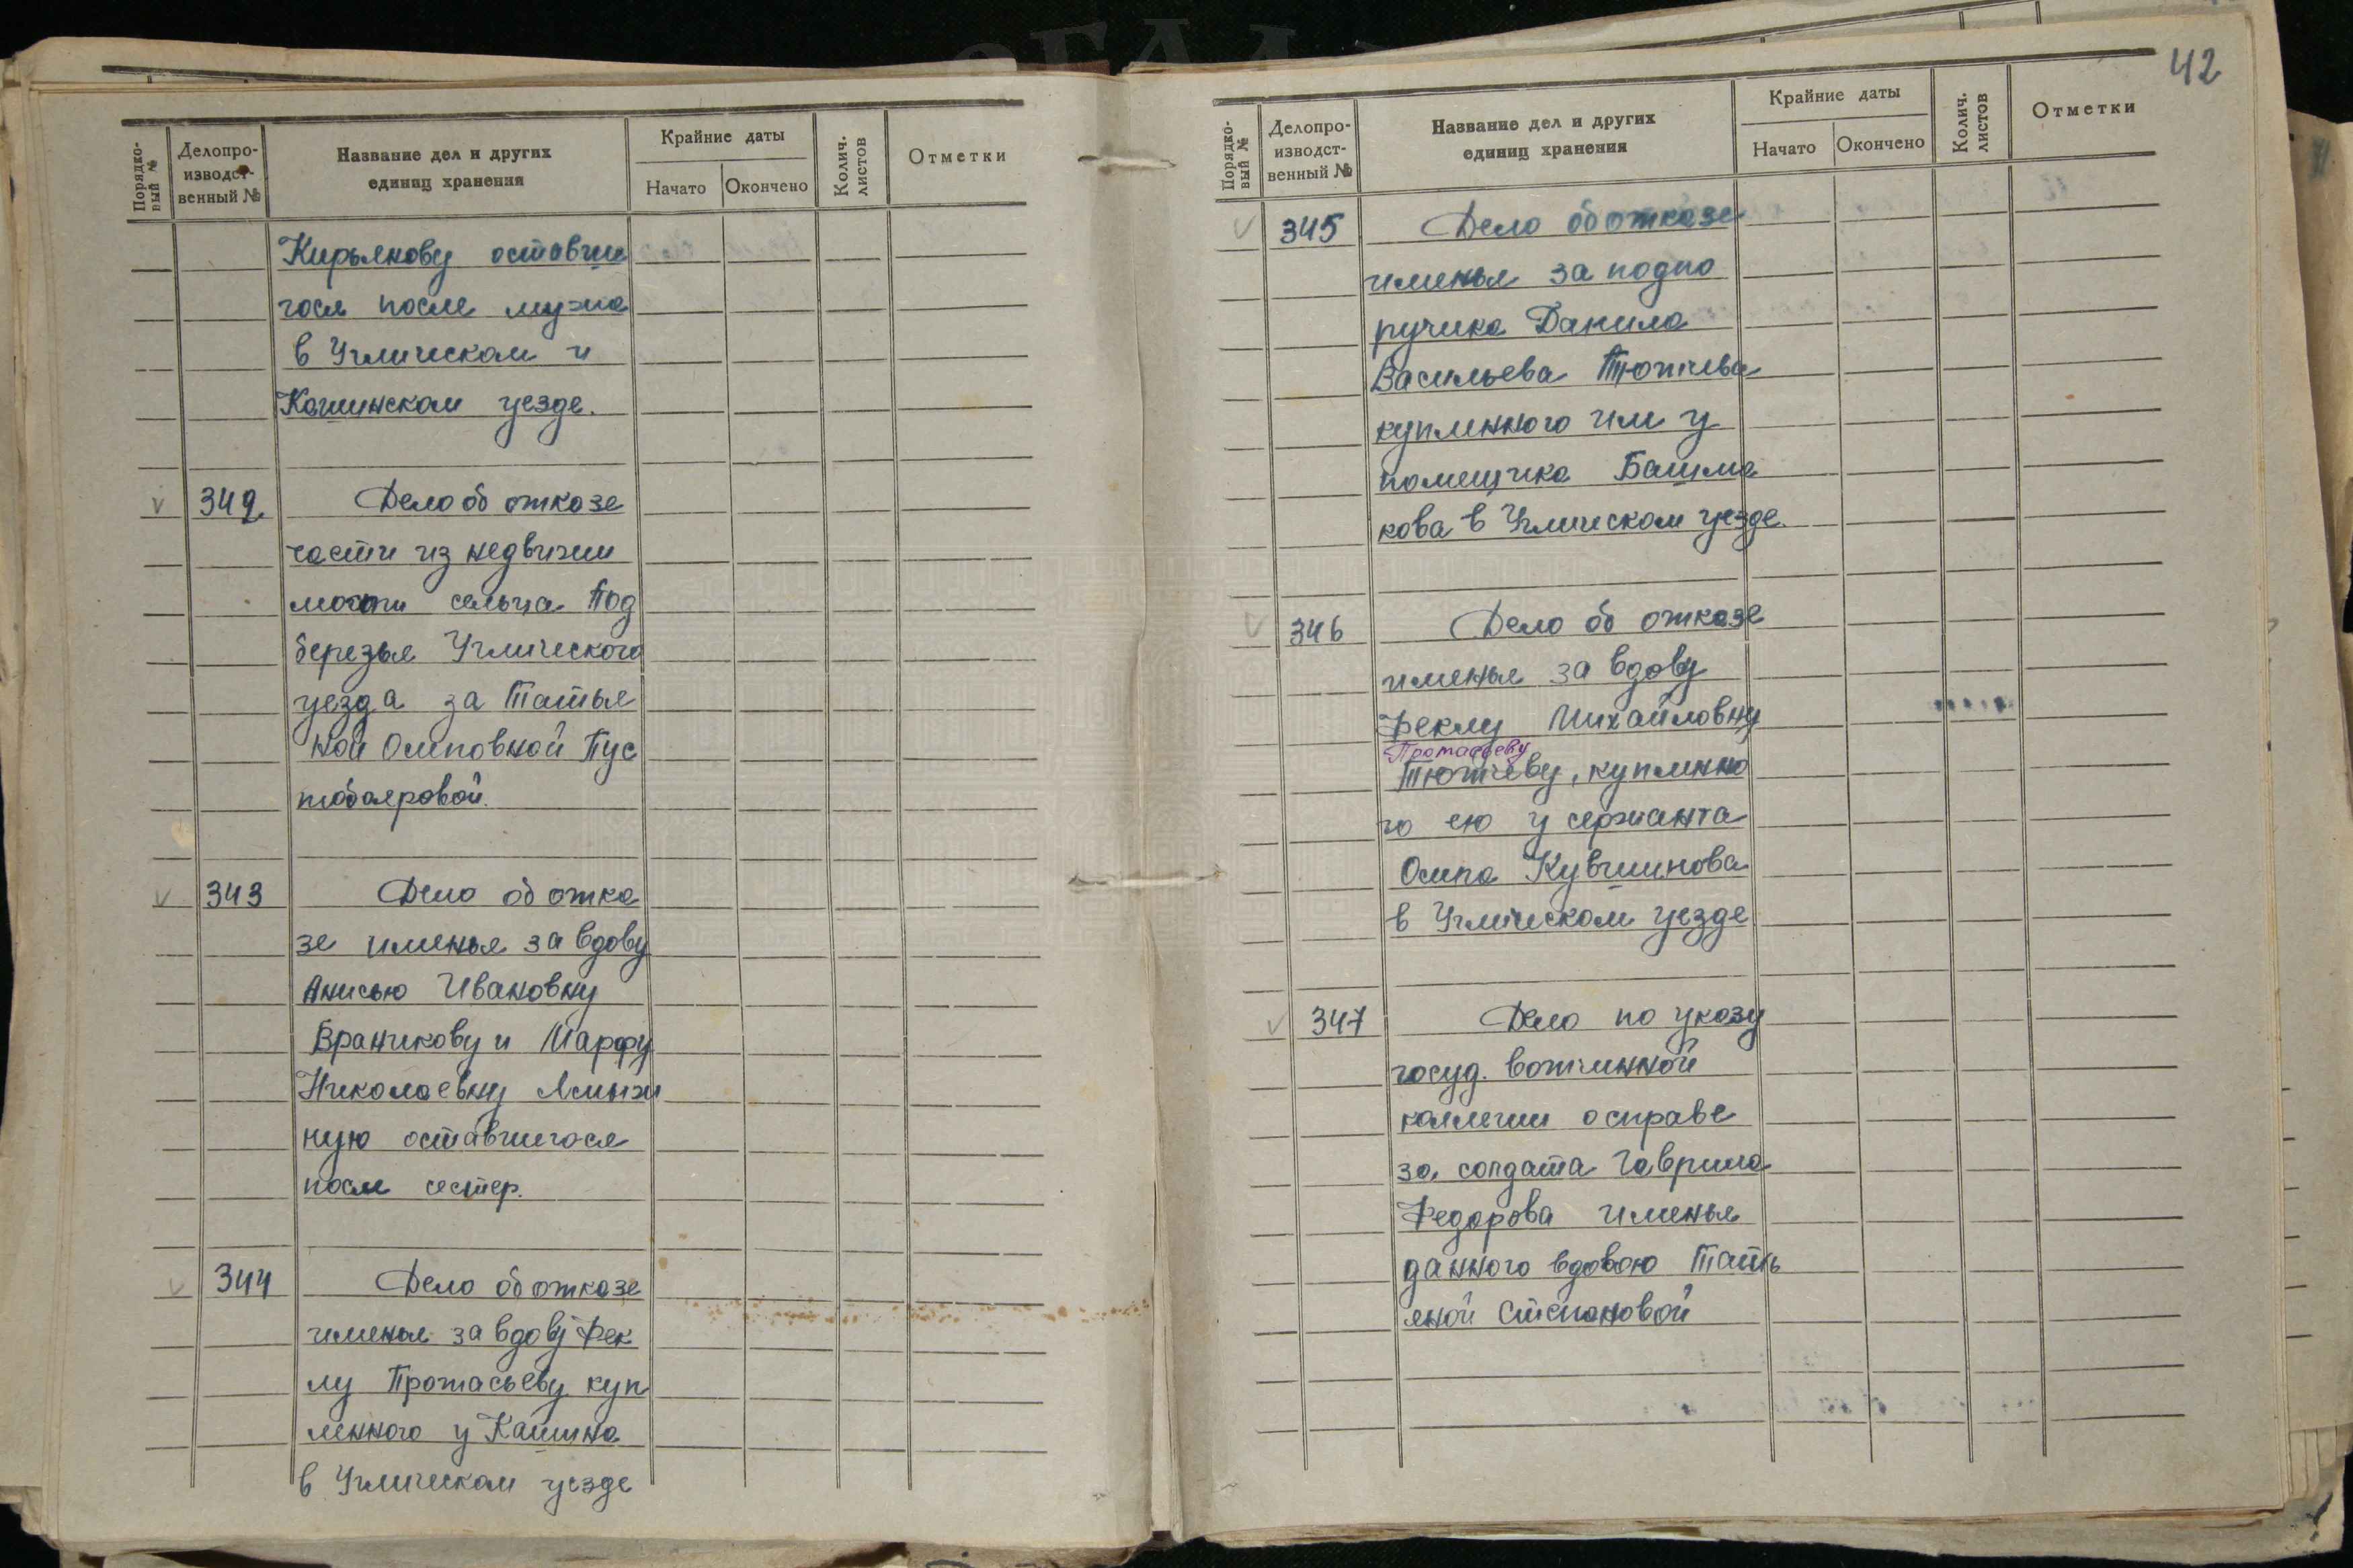 Порядко-
вый №
Делопро-
изводст-
венный №
Название дел и других
единиц хранения
Крайние даты
Начато
Окончено
Колич.
листов
Отметки
Кирьянову оставше
гося после мужа
в Угличском и
Кашинском уезде.
342
Дело об отказе
части из недвижи
мости сельца Под
березья Угличского
уезда за Татья
ной Осиповной Пус
тобояровой.
343
Дело об отка
зе именья за вдову
Анисью Ивановну
и Марфу
Николаевну
ную оставшегося
после сестер.
344
Дело об отказе
именья за вдову Фек
лу Протасьеву куп
ленного у Кашина
в Угличском уезде
42
Порядко-
вый №
Делопро-
изводст-
венный №
Название дел и других
единиц хранения
Крайние даты
Начато
Окончено
Колич.
листов
Отметки
345
Дело об отказе
именья за подпо
ручика Данила
Васильева Тютчева
купленного им у
помещика Башма
кова в Угличском уезде.
346
Дело об отказе
именья за вдову
Феклу Михайловну
Протасьеву
Тютчеву, купленно
го ею у сержанта
Осипа Кувшинова
в Угличском уезде
347
Дело по указу
госуд. вотчинной
коллегии о справе
за солдата Гаврила
Федорова именья
данного вдовою Тать
яной Степановой